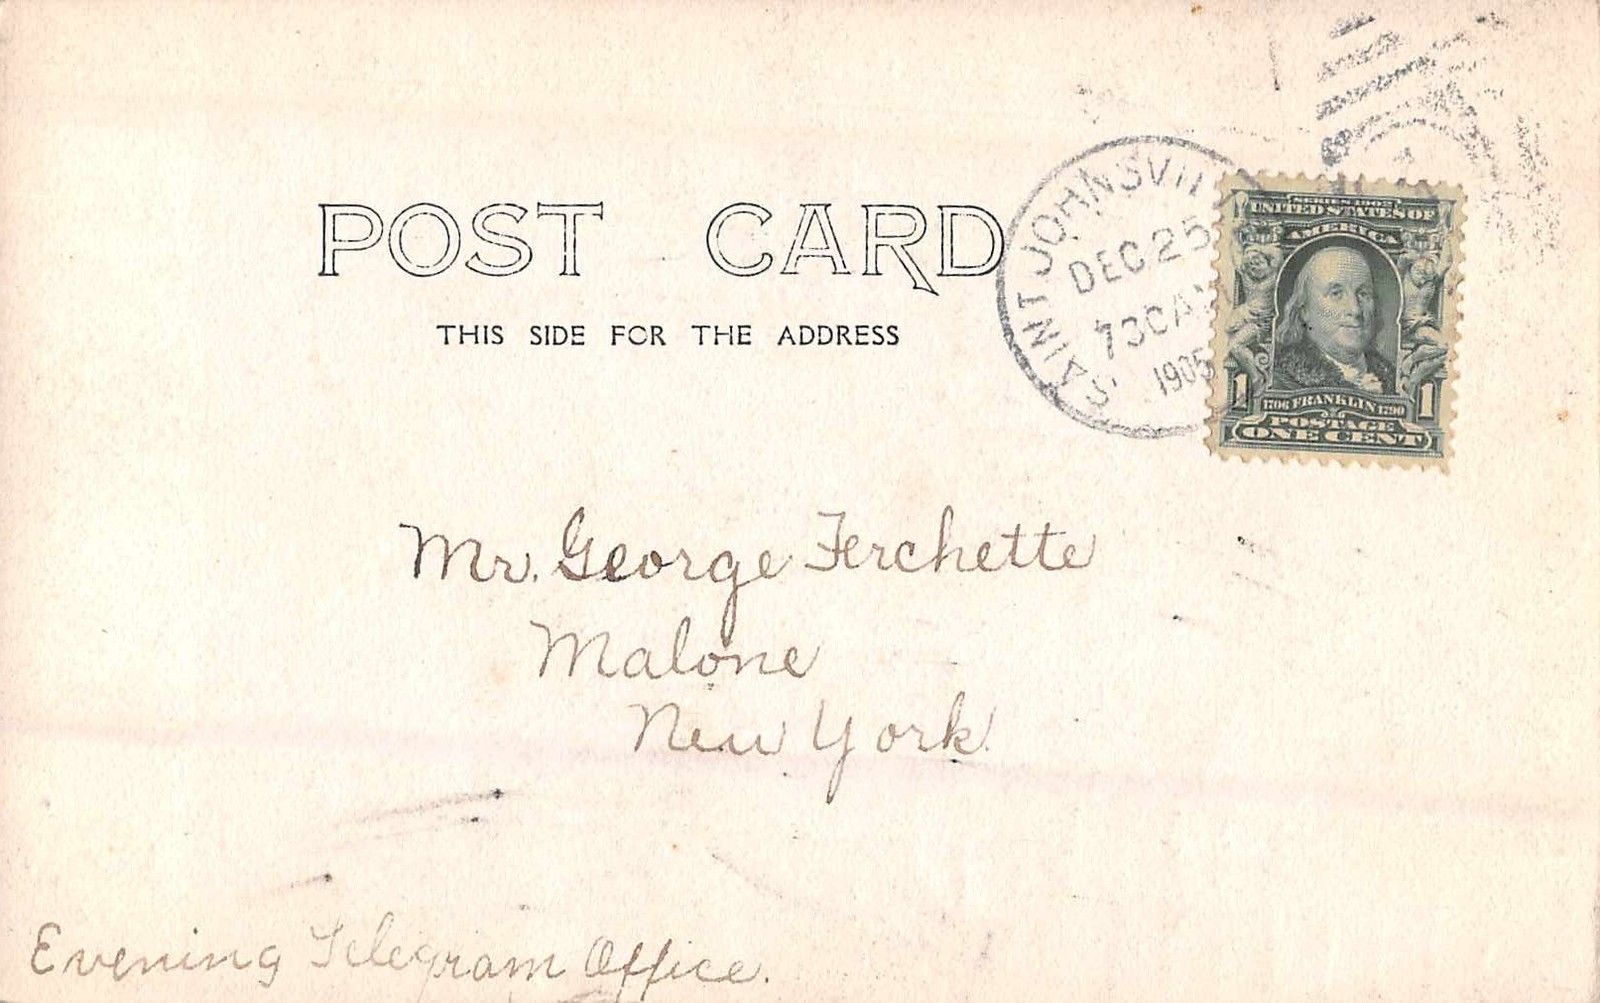 POST CARD
THIS SIDE FOR THE ADDRESS
SAINT JOHNSVIL
DEC 25
730 AM
1905
SERIES 1902
UNITED STATES OF
AMERICA
1 1
1706 FRANKLIN 1790
POSTAGE
ONE CENT
Mr. George Ferchette
Malone
New York.
Evening Telegram Office.